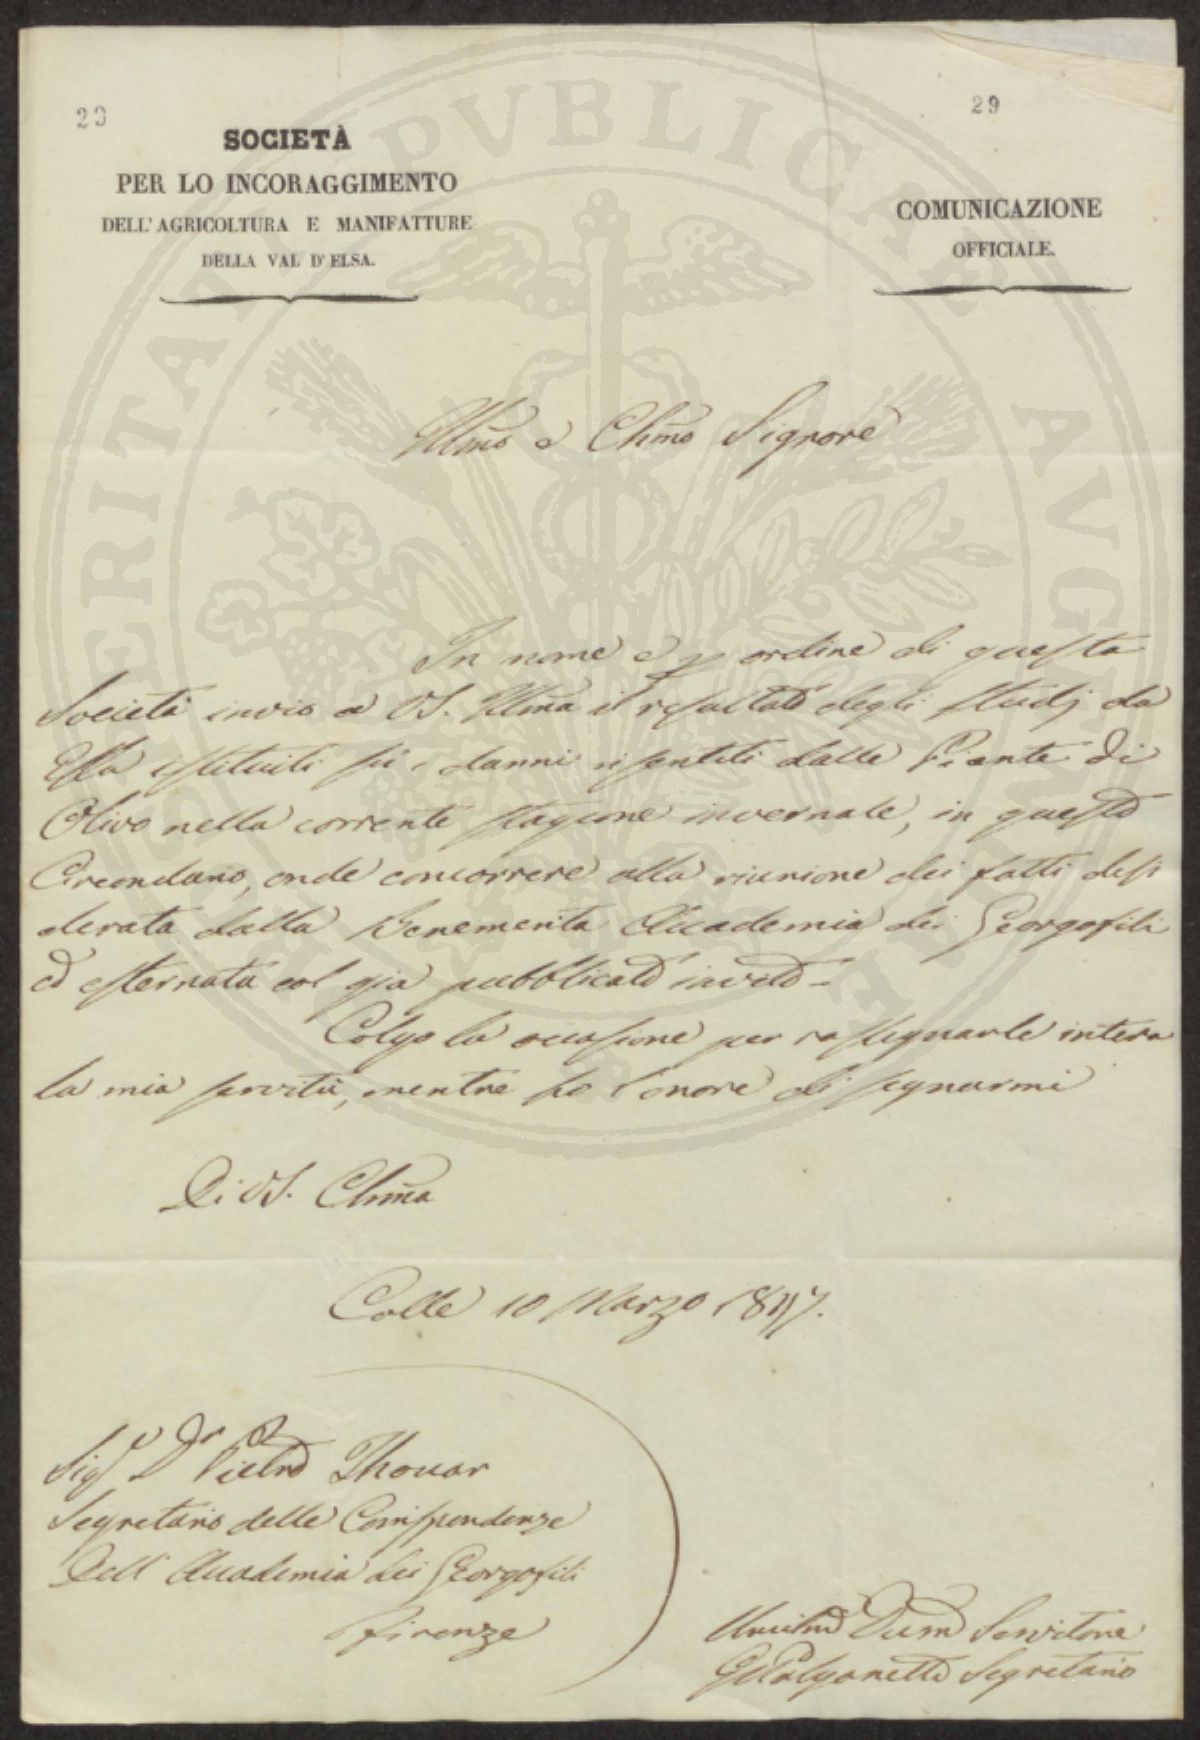 29
29
SOCIETÀ
PER LO INCORAGGIMENTO
DELL'AGRICOLTURA E MANIFATTURE
DELLA VAL D'ELSA.
COMUNICAZIONE
OFFICIALE.
PROSPERITATI PVBLICAE AVGENDAE
Illmo e Chmo Signore
In nome e p ordine di questa
Società invio a VS. Illma il resultato degli studj da
Essa istituiti su i danni risentiti dalle Piante di
Olivo nella corrente stagione invernale, in questo
Circondario, onde concorrere alla riunione dei fatti desi
derata dalla Benemerita Accademia dei Georgofili
ed esternata col già pubblicato invito –
Colgo la occasione per rassegnarle intera
la mia servitù, mentre ho l'onore di segnarmi
Di VS. Chma
Colle 10 Marzo 1847.
Sigr Dr Pietro Thouar
Segretario delle Corrispondenze
Dell'Accademia dei Georgofili
Firenze
Umilmo Devmo Servitore
Segretario